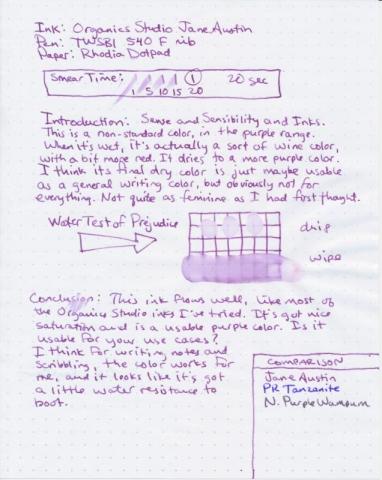 Ink: Organics Studio Jane Austin
Pen: TWSBI 540 F nib
Paper: Rhodia Dotpad
Smear Time: 1 20 sec
1 5 10 15 20
Introduction: Sense and Sensibility and Inks.
This is a non-standard color, in the purple range.
When it's wet, it's actually a sort of wine color,
with a bit more red. It dries to a more purple color.
I think its final dry color is just maybe usable
as a general writing color, but obviously not for
everything. Not quite as feminine as I had first thought.
Water Test of Prejudice
drip
wipe
Conclusion: This ink flows well, like most of
the Organics Studio inks I've tried. It's got nice
saturation and is a usable purple color. Is it
usable for your use cases?
I think for writing notes and
scribbling, the color works for
me, and it looks like it's got
a little water resistance to
boot.
COMPARISON
Jane Austin
PR Tanzanite
N. Purple Wampum